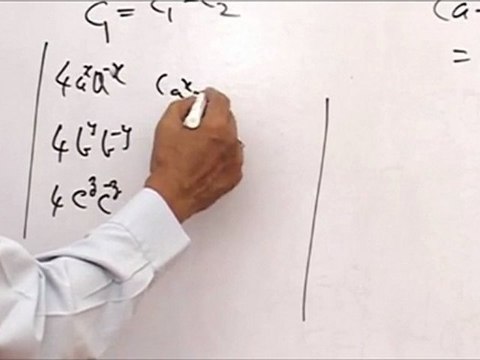 C₁ = C₁ - C₂
(a-
=
4aˣa⁻ˣ (aˣ-
4bʸb⁻ʸ
4cᶻc⁻ᶻ